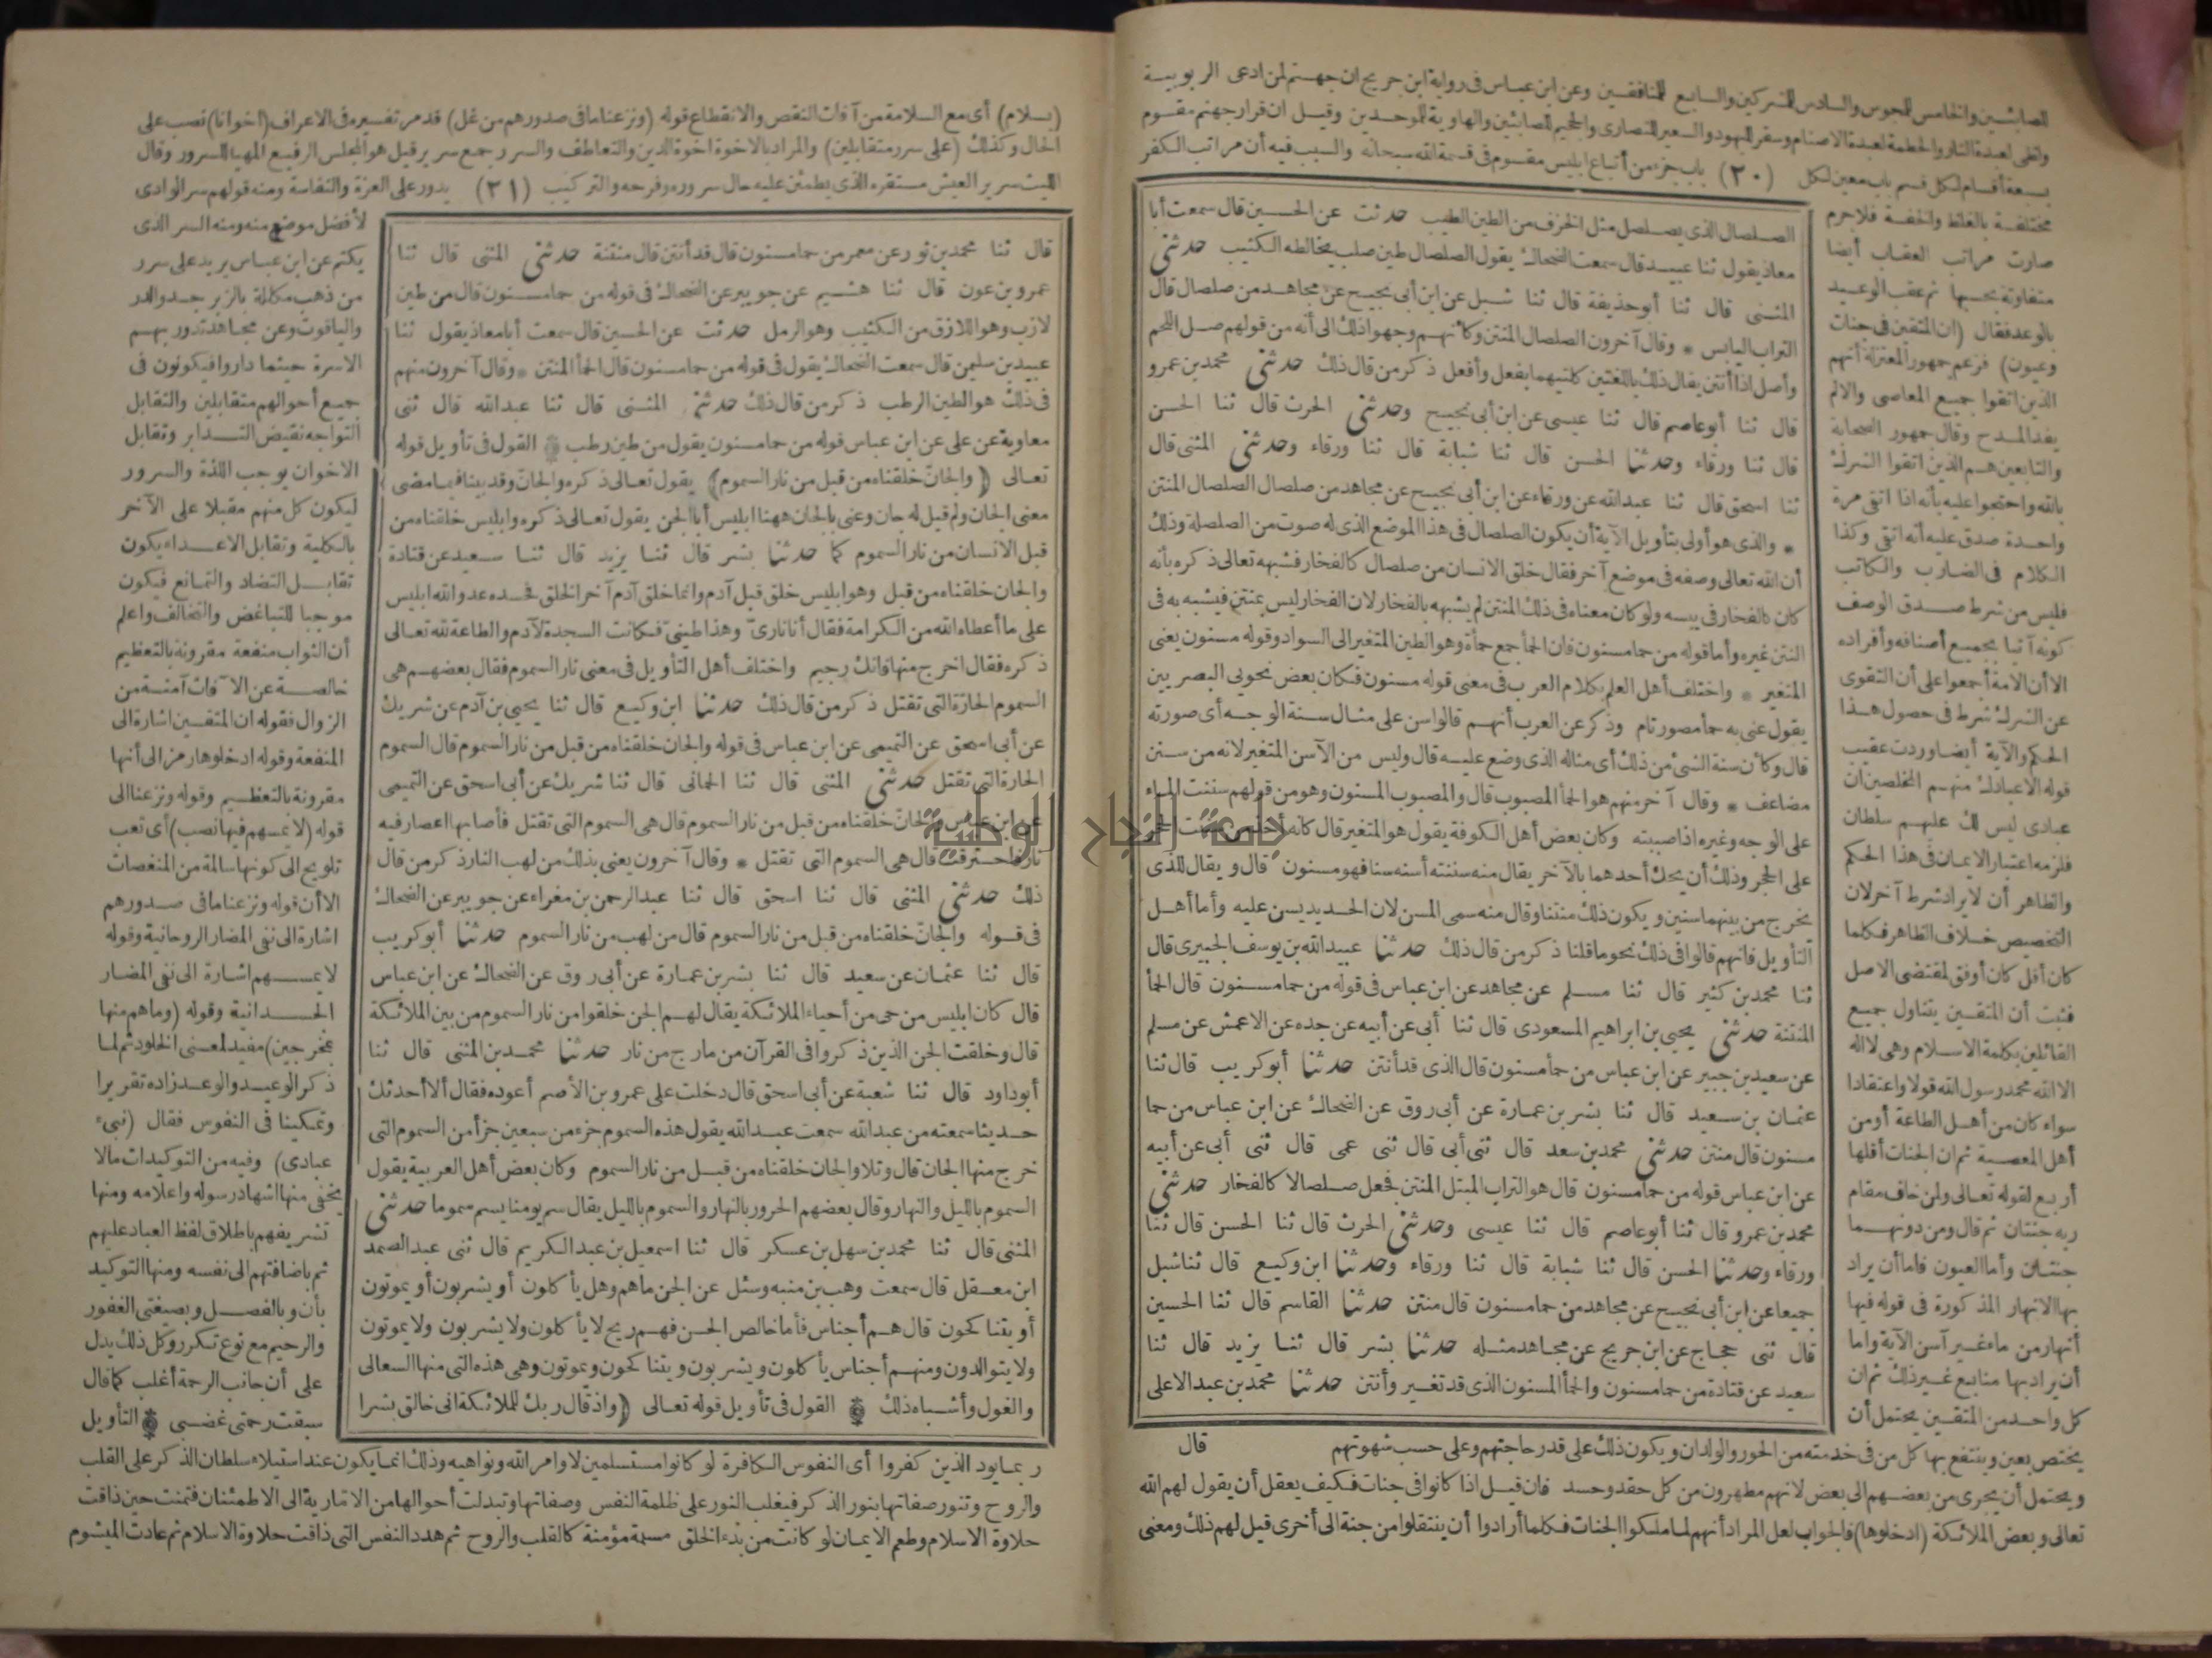 للصابئين والخامس للمجوس والسادس للمشركين والسابع للمنافقين وعن ابن عباس فى رواية ابن جريج ان جهنم لمن ادعى الربوبية
ولظى لعبدة النار والحطمة لعبدة الاصنام وسقر لليهود والسعير للنصارى والجحيم للصابئين والهاوية للموحدين وقيل ان قرار جهنم مقسوم
بسبعة أقسام لكل قسم باب معين لكل (٢٠) باب جزء من أتباع ابليس مقسوم فى قسمة الله سبحانه والسبب فيه أن مراتب الكفر
مختلفة بالغلظ والخفة فلاجرم
صارت مراتب العقاب أيضا
متفاوتة بحسبها ثم عقب الوعيد
بالوعد فقال (ان المتقين فى جنات
وعيون) فزعم جمهور المعتزلة أنهم
الذين اتقوا جميع المعاصى والالم
يفد المدح وقال جمهور الصحابة
والتابعين هم الذين اتقوا الشرك
بالله واحتجوا عليه بأنه اذا اتقى مرة
واحدة صدق عليه أنه اتقى وكذا
الكلام فى الضارب والكاتب
فليس من شرط صدق الوصف
كونه آتيا بجميع أصنافه وأفراده
الا أن الامة أجمعوا على أن التقوى
عن الشرك شرط فى حصول هذا
الحكم والآية أيضا وردت عقيب
قوله الا عبادك منهم المخلصين ان
عبادى ليس لك عليهم سلطان
فلزمه اعتبار الايمان فى هذا الحكم
والظاهر أن لا يراد شرط آخر لان
التخصيص خلاف الظاهر فكلما
كان أقل كان أوفق لمقتضى الاصل
فثبت أن المتقين يتناول جميع
القائلين بكلمة الاسلام وهى لا اله
الا الله محمد رسول الله قولا واعتقادا
سواء كان من أهل الطاعة أو من
أهل المعصية ثم ان الجنات أقلها
أربع لقوله تعالى ولمن خاف مقام
ربه جنتان ثم قال ومن دونهما
جنتان وأما العيون فاما أن يراد
بها الانهار المذكورة فى قوله فيها
أنهار من ماء غير آسن الآية واما
أن يراد بها منابع غير ذلك ثم ان
كل واحد من المتقين يحتمل أن
الصلصال الذى يصلصل مثل الخزف من الطين الطيب حدثت عن الحسين قال سمعت أبا
معاذ يقول ثنا عبيد قال سمعت الضحاك يقول الصلصال طين صلب يخالطه الكثيب حدثنى
المثنى قال ثنا أبو حذيفة قال ثنا شبل عن ابن أبى نجيح عن مجاهد من صلصال قال
التراب اليابس * وقال آخرون الصلصال المنتن وكأنهم وجهوا ذلك الى أنه من قولهم صل اللحم
وأصل اذا أنتن يقال ذلك باللغتين كلتيهما يفعل وأفعل ذكر من قال ذلك حدثنى محمد بن عمرو
قال ثنا أبو عاصم قال ثنا عيسى عن ابن أبى نجيح وحدثنى الحرث قال ثنا الحسن
قال ثنا ورقاء وحدثنا الحسن قال ثنا شبابة قال ثنا ورقاء وحدثنى المثنى قال
ثنا اسحق قال ثنا عبد الله عن ورقاء عن ابن أبى نجيح عن مجاهد من صلصال الصلصال المنتن
* والذى هو أولى بتأويل الآية أن يكون الصلصال فى هذا الموضع الذى له صوت من الصلصلة وذلك
أن الله تعالى وصفه فى موضع آخر فقال خلق الانسان من صلصال كالفخار فشبهه تعالى ذكره بأنه
كان كالفخار فى يبسه ولو كان معناه فى ذلك المنتن لم يشبهه بالفخار لان الفخار ليس بمنتن فيشبه به فى
النتن غيره وأما قوله من حما مسنون فان الحمأ جمع حمأة وهو الطين المتغير الى السواد وقوله مسنون يعنى
المتغير * واختلف أهل العلم بكلام العرب فى معنى قوله مسنون فكان بعض نحويى البصريين
يقول عنى به حمأ مصور تام وذكر عن العرب أنهم قالوا سن على مثال سنة الوجه أى صورته
قال وكأن سنة الشئ من ذلك أى مثاله الذى وضع عليه قال وليس من الآسن المتغير لانه من سنن
مضاعف * وقال آخر منهم هو الحمأ المصبوب قال والمصبوب المسنون وهو من قولهم سننت الماء
على الوجه وغيره اذا صببته وكان بعض أهل الكوفة يقول هو المتغير قال كأنه أخذ من سننت الحجر
على الحجر وذلك أن يحك أحدهما بالآخر يقال منه سننته أسنه سنا فهو مسنون قال ويقال للذى
يخرج من بينهما سنين ويكون ذلك منتنا وقال منه سمى المسن لان الحديد يسن عليه وأما أهل
التأويل فانهم قالوا فى ذلك نحو ما قلنا ذكر من قال ذلك حدثنا عبيد الله بن يوسف الجبيرى قال
ثنا محمد بن كثير قال ثنا مسلم عن مجاهد عن ابن عباس فى قوله من حما مسنون قال الحمأ
المنتنة حدثنى يحيى بن ابراهيم المسعودى قال ثنا أبى عن أبيه عن جده عن الاعمش عن مسلم
عن سعيد بن جبير عن ابن عباس من حمأ مسنون قال الذى قد أنتن حدثنا أبو كريب قال ثنا
عثمان بن سعيد قال ثنا بشر بن عمارة عن أبى روق عن الضحاك عن ابن عباس من حما
مسنون قال منتن حدثنى محمد بن سعد قال ثنى أبى قال ثنى عمى قال ثنى أبى عن أبيه
عن ابن عباس قوله من حما مسنون قال هو التراب المبتل المنتن فجعل صلصالا كالفخار حدثنى
محمد بن عمرو قال ثنا أبو عاصم قال ثنا عيسى وحدثنى الحرث قال ثنا الحسن قال ثنا
ورقاء وحدثنا الحسن قال ثنا شبابة قال ثنا ورقاء وحدثنا ابن وكيع قال ثنا شبل
جميعا عن ابن أبى نجيح عن مجاهد من حما مسنون قال منتن حدثنا القاسم قال ثنا الحسين
قال ثنى حجاج عن ابن جريج عن مجاهد مثله حدثنا بشر قال ثنا يزيد قال ثنا
سعيد عن قتادة من حما مسنون والحمأ المسنون الذى قد تغير وأنتن حدثنا محمد بن عبد الاعلى
يختص بعين وينتفع بها كل من فى خدمته من الحور والولدان ويكون ذلك على قدر حاجتهم وعلى حسب شهوتهم قال
ويحتمل أن يجرى من بعضهم الى بعض لانهم مطهرون من كل حقد وحسد فان قيل اذا كانوا فى جنات فكيف يعقل أن يقول لهم الله
تعالى وبعض الملائكة (ادخلوها) فالجواب لعل المراد أنهم لما ملكوا الجنات فكلما أرادوا أن ينتقلوا من جنة الى أخرى قيل لهم ذلك ومعنى
(بسلام) أى مع السلامة من آفات النقص والانقطاع قوله (ونزعنا ما فى صدورهم من غل) قد مر تفسيره فى الاعراف (اخوانا) نصب على
الحال وكذلك (على سرر متقابلين) والمراد بالاخوة اخوة الدين والتعاطف والسرر جمع سرير قيل هو المجلس الرفيع المهيأ للسرور وقال
الليث سرير العيش مستقره الذى يطمئن عليه حال سروره وفرحه والتركيب (٢١) يدور على العزة والنفاسة ومنه قولهم سر الوادى
قال ثنا محمد بن ثور عن معمر من حما مسنون قال قد أنتن قال منتنة حدثنى المثنى قال ثنا
عمرو بن عون قال ثنا هشيم عن جويبر عن الضحاك فى قوله من حما مسنون قال من طين
لازب وهو اللازق من الكثيب وهو الرمل حدثت عن الحسين قال سمعت أبا معاذ يقول ثنا
عبيد بن سليمن قال سمعت الضحاك يقول فى قوله من حما مسنون قال الحمأ المنتن * وقال آخرون منهم
فى ذلك هو الطين الرطب ذكر من قال ذلك حدثنى المثنى قال ثنا عبد الله قال ثنى
معاوية عن على عن ابن عباس قوله من حما مسنون يقول من طين رطب القول فى تأويل قوله
تعالى (والجان خلقناه من قبل من نار السموم) يقول تعالى ذكره والجان وقد بينا فيما مضى
معنى الجان ولم قيل له جان وعنى بالجان ههنا ابليس أبا الجن يقول تعالى ذكره وابليس خلقناه من
قبل الانسان من نار السموم كما حدثنا بشر قال ثنا يزيد قال ثنا سعيد عن قتادة
والجان خلقناه من قبل وهو ابليس خلق قبل آدم وانما خلق آدم آخر الخلق فحسده عدو الله ابليس
على ما أعطاه الله من الكرامة فقال أنا نارى وهذا طينى فكانت السجدة لآدم والطاعة لله تعالى
ذكره فقال اخرج منها فانك رجيم واختلف أهل التأويل فى معنى نار السموم فقال بعضهم هى
السموم الحارة التى تقتل ذكر من قال ذلك حدثنا ابن وكيع قال ثنا يحيى بن آدم عن شريك
عن أبى اسحق عن التميمى عن ابن عباس فى قوله والجان خلقناه من قبل من نار السموم قال السموم
الحارة التى تقتل حدثنى المثنى قال ثنا الحمانى قال ثنا شريك عن أبى اسحق عن التميمى
عن ابن عباس والجان خلقناه من قبل من نار السموم قال هى السموم التى تقتل فأصابها اعصار فيه
نار فاحترقت قال هى السموم التى تقتل * وقال آخرون يعنى بذلك من لهب النار ذكر من قال
ذلك حدثنى المثنى قال ثنا اسحق قال ثنا عبد الرحمن بن مغراء عن جويبر عن الضحاك
فى قوله والجان خلقناه من قبل من نار السموم قال من لهب من نار السموم حدثنا أبو كريب
قال ثنا عثمان عن سعيد قال ثنا بشر بن عمارة عن أبى روق عن الضحاك عن ابن عباس
قال كان ابليس من حى من أحياء الملائكة يقال لهم الجن خلقوا من نار السموم من بين الملائكة
قال وخلقت الجن الذين ذكروا فى القرآن من مارج من نار حدثنا محمد بن المثنى قال ثنا
أبو داود قال ثنا شعبة عن أبى اسحق قال دخلت على عمرو بن الأصم أعوده فقال ألا أحدثك
حديثا سمعته من عبد الله سمعت عبد الله يقول هذه السموم جزء من سبعين جزأ من السموم التى
خرج منها الجان قال وتلا والجان خلقناه من قبل من نار السموم وكان بعض أهل العربية يقول
السموم بالليل والنهار وقال بعضهم الحرور بالنهار والسموم بالليل يقال سم يومنا يسم سموما حدثنى
المثنى قال ثنا محمد بن سهل بن عسكر قال ثنا اسمعيل بن عبد الكريم قال ثنى عبد الصمد
ابن معقل قال سمعت وهب بن منبه وسئل عن الجن ما هم وهل يأكلون أو يشربون أو يموتون
أو يتناكحون قال هم أجناس فأما خالص الجن فهم ريح لا يأكلون ولا يشربون ولا يموتون
ولا يتوالدون ومنهم أجناس يأكلون ويشربون ويتناكحون ويموتون وهى هذه التى منها السعالى
والغول وأشباه ذلك القول فى تأويل قوله تعالى (واذ قال ربك للملائكة انى خالق بشرا
لأفضل موضع منه ومنه السر الذى
يكتم عن ابن عباس يريد على سرر
من ذهب مكللة بالزبرجد والدر
والياقوت وعن مجاهد تدور بهم
الاسرة حيثما داروا فيكونون فى
جميع أحوالهم متقابلين والتقابل
التواجه نقيض التدابر وتقابل
الاخوان يوجب اللذة والسرور
ليكون كل منهم مقبلا على الآخر
بالكلية وتقابل الاعداء يكون
تقابل التضاد والتمانع فيكون
موجبا للتباغض والتخالف واعلم
أن الثواب منفعة مقرونة بالتعظيم
خالصة عن الآفات آمنة من
الزوال فقوله ان المتقين اشارة الى
المنفعة وقوله ادخلوها رمز الى أنها
مقرونة بالتعظيم وقوله ونزعنا الى
قوله (لا يمسهم فيها نصب) أى تعب
تلويح الى كونها سالمة من المنغصات
الا أن قوله ونزعنا ما فى صدورهم
اشارة الى نفى المضار الروحانية وقوله
لا يمسهم اشارة الى نفى المضار
الجسدانية وقوله (وما هم منها
بمخرجين) مفيد لمعنى الخلود ثم لما
ذكر الوعيد والوعد زاده تقريرا
وتمكينا فى النفوس فقال (نبىء
عبادى) وفيه من التوكيدات ما لا
يخفى منها اشهاد رسوله واعلامه ومنها
تشريفهم باطلاق لفظ العباد عليهم
ثم باضافتهم الى نفسه ومنها التوكيد
بأن وبالفصل وبصيغتى الغفور
والرحيم مع نوع تكرر وكل ذلك يدل
على أن جانب الرحمة أغلب كما قال
سبقت رحمتى غضبى التأويل
ربما يود الذين كفروا أى النفوس الكافرة لو كانوا مستسلمين لاوامر الله ونواهيه وذلك انما يكون عند استيلاء سلطان الذكر على القلب
والروح وتنور صفاتها بنور الذكر فيغلب النور على ظلمة النفس وصفاتها وتبدلت أحوالها من الامارية الى الاطمئنان فتمنت حين ذاقت
حلاوة الاسلام وطعم الايمان لو كانت من بدء الخلق مسلمة مؤمنة كالقلب والروح ثم هدد النفس التى ذاقت حلاوة الاسلام ثم عادت الميشوم
جامعة النجاح الوطنية